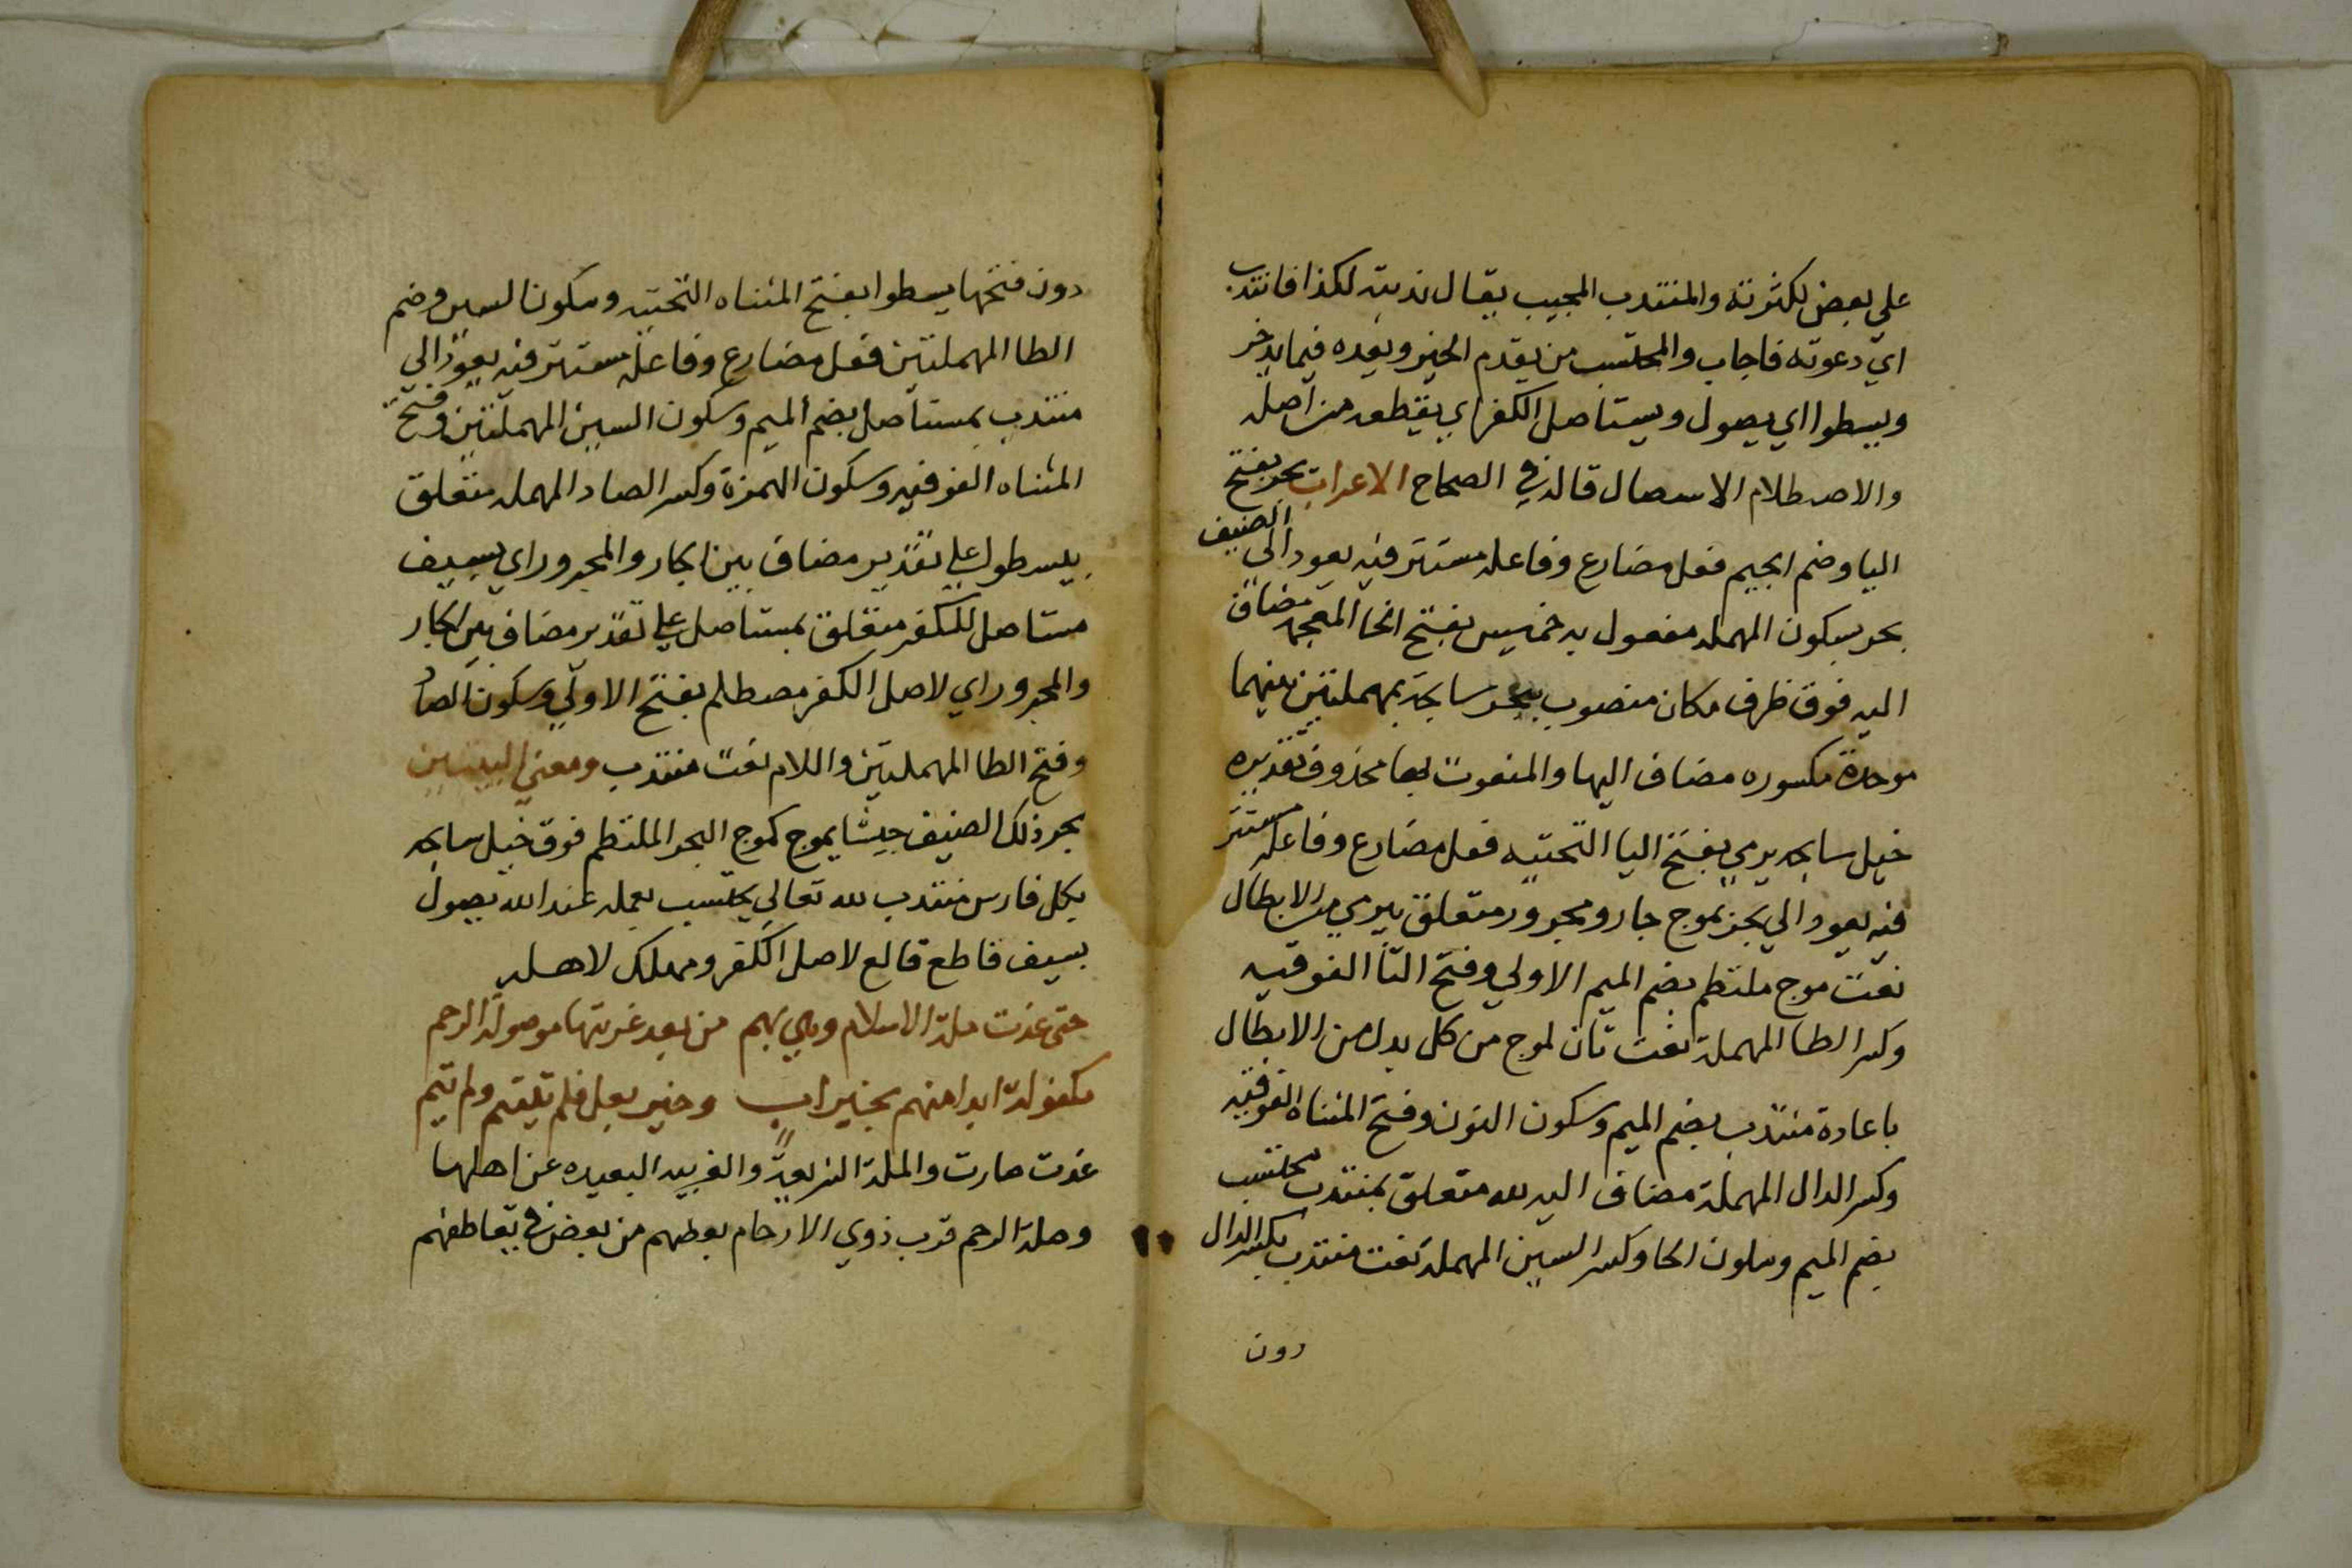 علي بعض لكثرته والمنتدب المجيب يقال ندبته لكذا فانتدب
اي دعوته فاجاب والمحتسب من يقدم الخير ويعده فيما يدخر
ويسطوا اي يصول ويستاصل الكفر اي يقطعه من اصله
والاصطلام الاسصال قاله في الصحاح الاعراب يجر بفتح
اليا وضم الجيم فعل مضارع وفاعله مستتر فيه يعود الي الضيف
بحر بسكون المهمله مفعول به خميس بفتح الخا المعجمه مضاف
اليه فوق ظرف مكان منصوب بيجر سابحة بمهملتين بينهما
موحدة مكسوره مضاف اليها والمنعوت بها محذوف تقديره
خيل سابحه يرمي بفتح اليا التحتيه فعل مضارع وفاعله مستتر
فيه يعود الي بحر بموج جار ومجرور متعلق بيرمي من الابطال
نعت موج ملتطم بضم الميم الاولي وفتح التا الفوقيه
وكسر الطا المهملة نعت ثان لموج من كل بدل من الابطال
باعادة منتدب بضم الميم وسكون النون وفتح المثناه الفوقيه
وكسر الدال المهملة مضاف اليه لله متعلق بمنتدب محتسب
بضم الميم وسلون الحا وكسر السين المهمله نعت منتدب بكسر الدال
دون
دون فتحها يسطوا بفتح المثناه التحتيه وسكون السين وضم
الطا المهملتين فعل مضارع وفاعله مستتر فيه يعود الي
منتدب بمستأصل بضم الميم وسكون السين المهملتين وفتح
المثناه الفوقيه وسكون الهمزة وكسر الصاد المهمله متعلق
بيسطوا علي تقدير مضاف بين الجار والمجرور اي بسيف
مستاصل للكفر متعلق بمستاصل علي تقدير مضاف بين الجار
والمجرور اي لاصل الكفر مصطلم بفتح الاولي وسكون الصاد
وفتح الطا المهملتين واللام نعت منتدب ومعني البيتين
يجر ذلك الضيف جيشا يموج كموج البحر الملتطم فوق خيل سابحه
بكل فارس منتدب لله تعالي يحتسب بعمله عند الله يصول
بسيف قاطع قالع لاصل الكفر ومهلك لاهله
حتي غدت ملة الاسلام وهي بهم من بعد غربتها موصولة الرحم
مكفولة ابدا منهم بخير اب وخير بعل فلم تيتم ولم تئم
غدت صارت والملة الشريعة والغريبه البعيده عن اهلها
وصلة الرحم قرب ذوي الارحام بعضهم من بعض في تعاطفهم